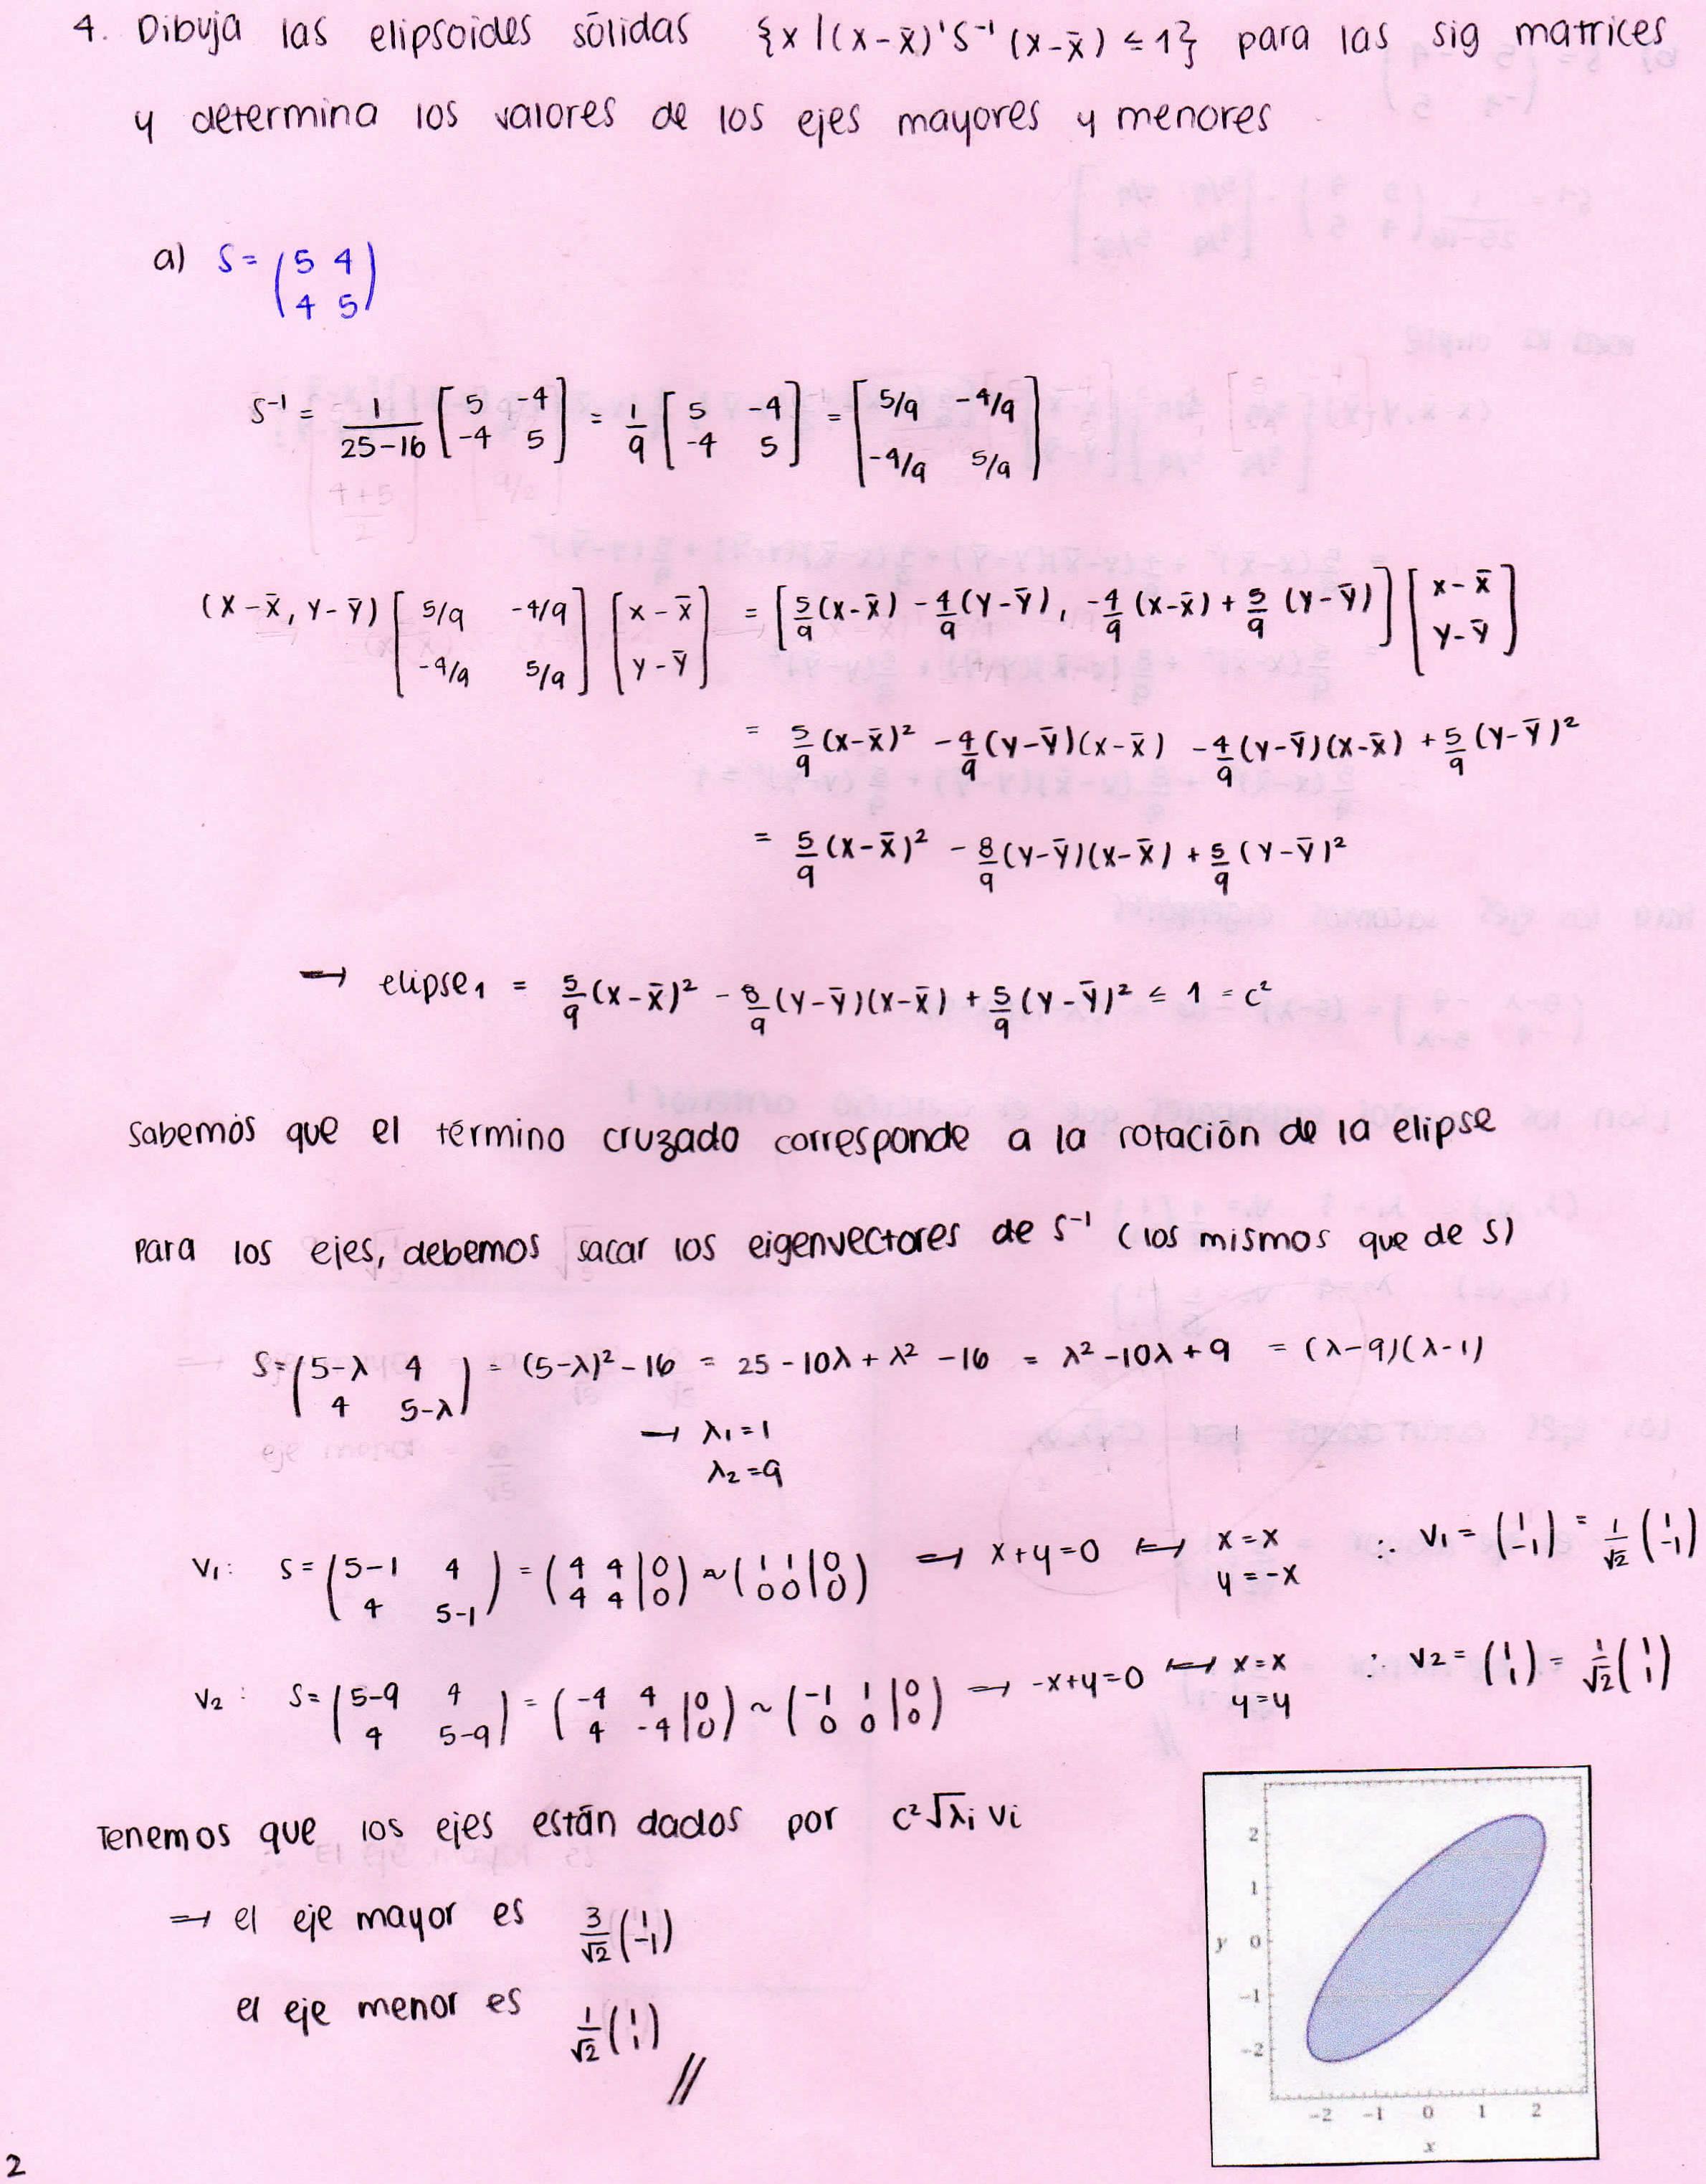 4. Dibuja las elipsoides sólidas {x|(x-x̄)'S⁻¹(x-x̄) ≤ 1} para las sig matrices
y determina los valores de los ejes mayores y menores
a) S = (5 4; 4 5)
S⁻¹ = 1/(25-16) [5 -4; -4 5] = 1/9 [5 -4; -4 5] = [5/9 -4/9; -4/9 5/9]
(x-x̄, y-ȳ) [5/9 -4/9; -4/9 5/9] [x-x̄; y-ȳ] = [5/9(x-x̄) - 4/9(y-ȳ), -4/9(x-x̄) + 5/9(y-ȳ)] [x-x̄; y-ȳ]
= 5/9(x-x̄)² - 4/9(y-ȳ)(x-x̄) - 4/9(y-ȳ)(x-x̄) + 5/9(y-ȳ)²
= 5/9(x-x̄)² - 8/9(y-ȳ)(x-x̄) + 5/9(y-ȳ)²
→ elipse₁ = 5/9(x-x̄)² - 8/9(y-ȳ)(x-x̄) + 5/9(y-ȳ)² ≤ 1 = c²
Sabemos que el término cruzado corresponde a la rotación de la elipse
Para los ejes, debemos sacar los eigenvectores de S⁻¹ (los mismos que de S)
S = (5-λ 4; 4 5-λ) = (5-λ)² - 16 = 25 - 10λ + λ² - 16 = λ² - 10λ + 9 = (λ-9)(λ-1)
→ λ₁ = 1
λ₂ = 9
V₁: S = (5-1 4; 4 5-1) = (4 4|0; 4 4|0) ~ (1 1|0; 0 0|0) → x+y=0 ↔ x=x y=-x ∴ V₁ = (1; -1) = 1/√2 (1; -1)
V₂: S = (5-9 4; 4 5-9) = (-4 4|0; 4 -4|0) ~ (-1 1|0; 0 0|0) → -x+y=0 ↔ x=x y=y ∴ V₂ = (1; 1) = 1/√2 (1; 1)
Tenemos que los ejes están dados por c²√λᵢ Vᵢ
→ el eje mayor es 3/√2 (1; -1)
el eje menor es 1/√2 (1; 1) //
2
1
y 0
-1
-2
-2 -1 0 1 2
x
2